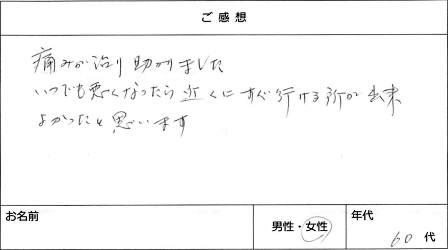 ご感想
痛みが治り助かりました
いつでも悪くなったら近くにすぐ行ける所が出来
よかったと思います
お名前
男性・女性
年代
60代